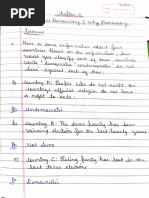 Chapter-2
What is Democracy? Why Democracy
Exercise
1. Here is some information about four
countries. Based on the information, how
would you classify each of these countries
Write "democratic" "undemocratic" or not
sure against each of them.
a) Country A: People who do not accept the
country's official religion do not have the
right to vote.
Undemocratic
b) Country B: The same party has been
winning election for the last twenty years
Not sure
c) Country C: Ruling party has lost in the
last three election
Democratic